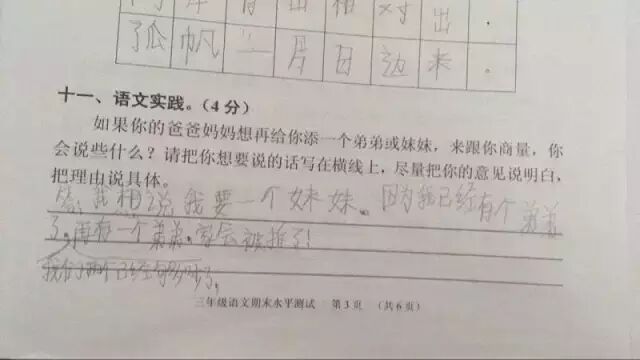 出
了孤帆一片日边来。
十一、语文实践。(4分)
如果你的爸爸妈妈想再给你添一个弟弟或妹妹,来跟你商量,你
会说些什么?请把你想要说的话写在横线上,尽量把你的意见说明白,
把理由说具体。
答:我想说我要一个妹妹。因为我已经有个弟弟
了。再有一个弟弟,家会被拆了!
我们两个已经够
三年级语文期末水平测试 第3页 (共6页)